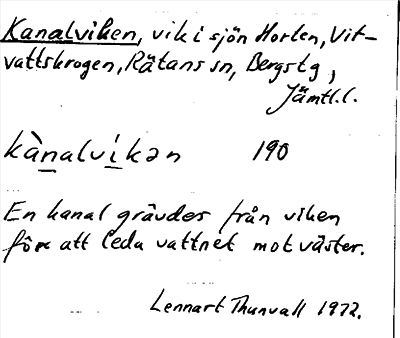 Kanalviken, vik i sjön Horten, Vit-
vattskrogen, Rätans sn, Bergs tg,
Jämtl.l.
kànalvikən 190
En kanal grävdes från viken
för att leda vattnet mot väster.
Lennart Thunvall 1972.